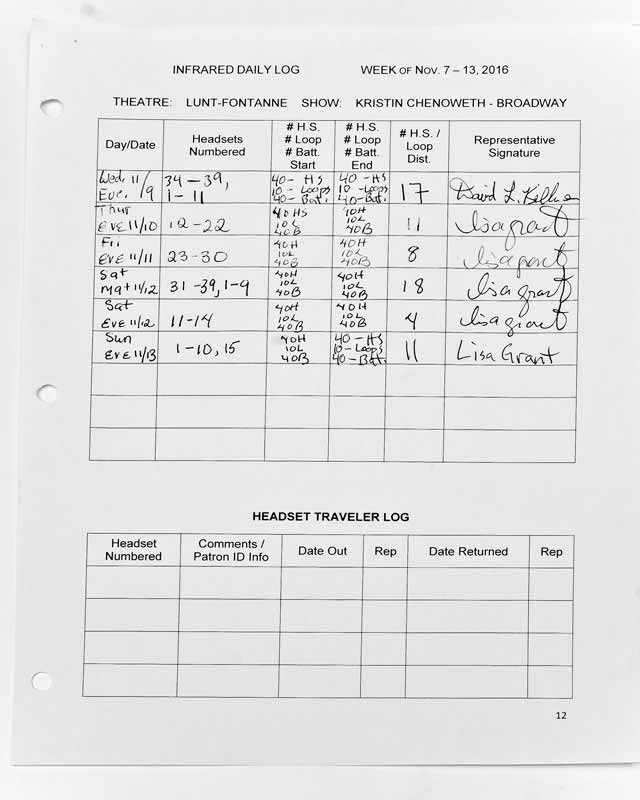 INFRARED DAILY LOG WEEK OF NOV. 7 – 13, 2016
THEATRE: LUNT-FONTANNE SHOW: KRISTIN CHENOWETH - BROADWAY
Day/Date
Headsets
Numbered
# H.S.
# Loop
# Batt.
Start
# H.S.
# Loop
# Batt.
End
# H.S. /
Loop
Dist.
Representative
Signature
Wed. 11/9
Eve.
34 – 39,
1 – 11
40 – HS
10 – Loops
40 – Batt.
40 – HS
10 – Loops
40 – Batt.
17
David L.
Thur
EVE 11/10
12 – 22
40HS
10L
40B
40H
10L
40B
11
Lisa Grant
Fri
EVE 11/11
23 – 30
40H
10L
40B
40H
10L
40B
8
Lisa Grant
Sat
mat 11/12
31 – 39, 1 – 9
40H
10L
40B
40H
10L
40B
18
Lisa Grant
Sat
EVE 11/12
11 – 14
40H
10L
40B
40H
10L
40B
4
Lisa Grant
Sun
EVE 11/13
1 – 10, 15
40H
10L
40B
40 – HS
10 – Loops
40 – Batt.
11
Lisa Grant
HEADSET TRAVELER LOG
Headset
Numbered
Comments /
Patron ID Info
Date Out
Rep
Date Returned
Rep
12